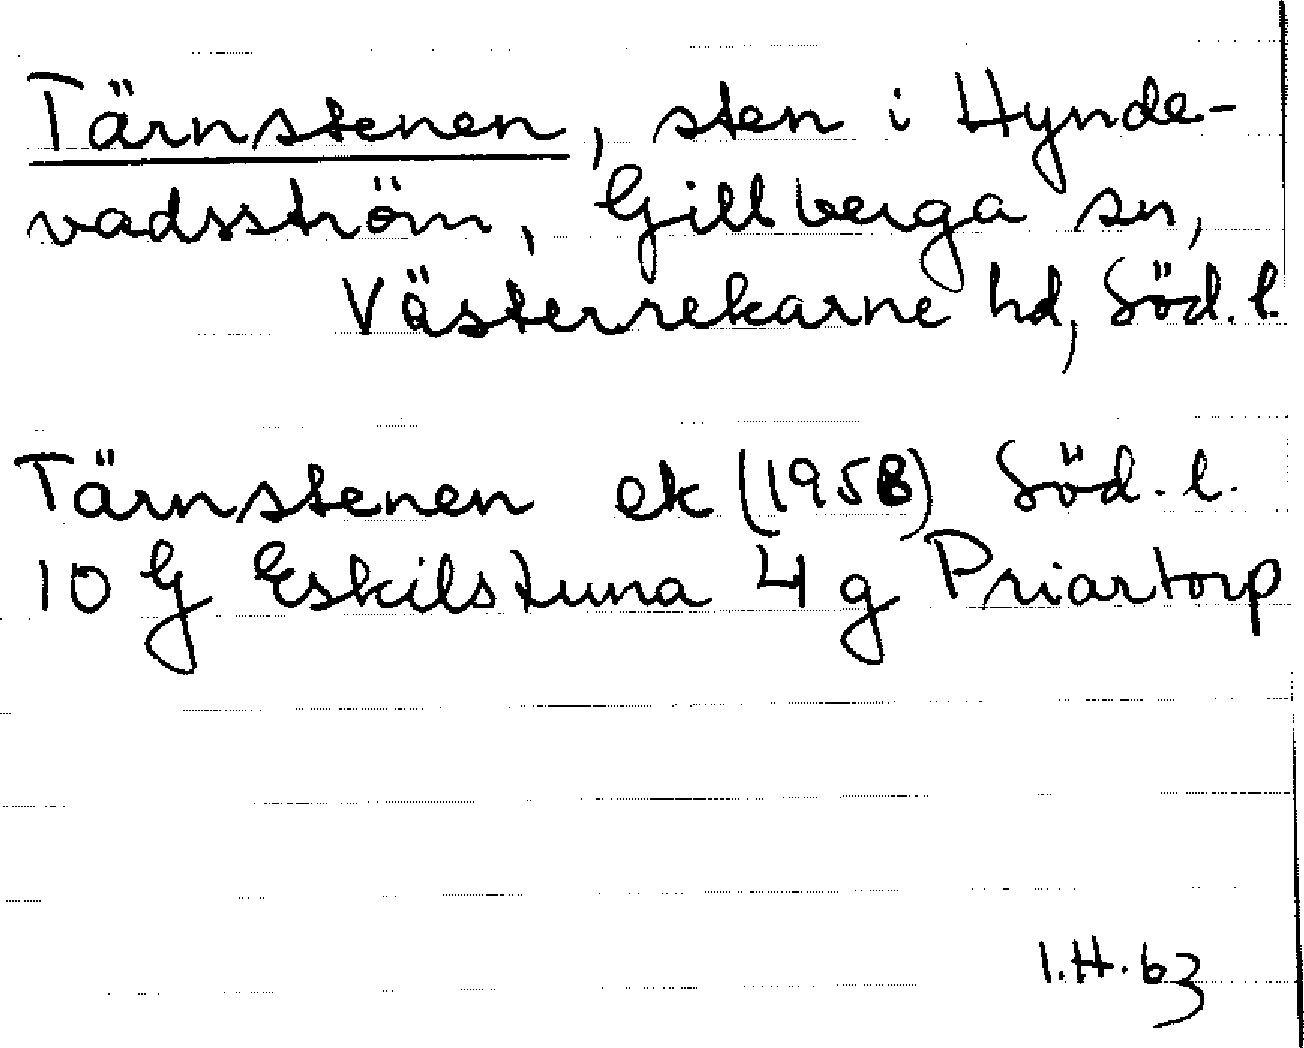 Tärnstenen, sten i Hynde-
vadsström, Gillberga sn,
Västerrekarne hd, Söd.l.
Tärnstenen ek (1958) Söd.l.
10 G Eskilstuna 4 g Priartorp
I.H.63